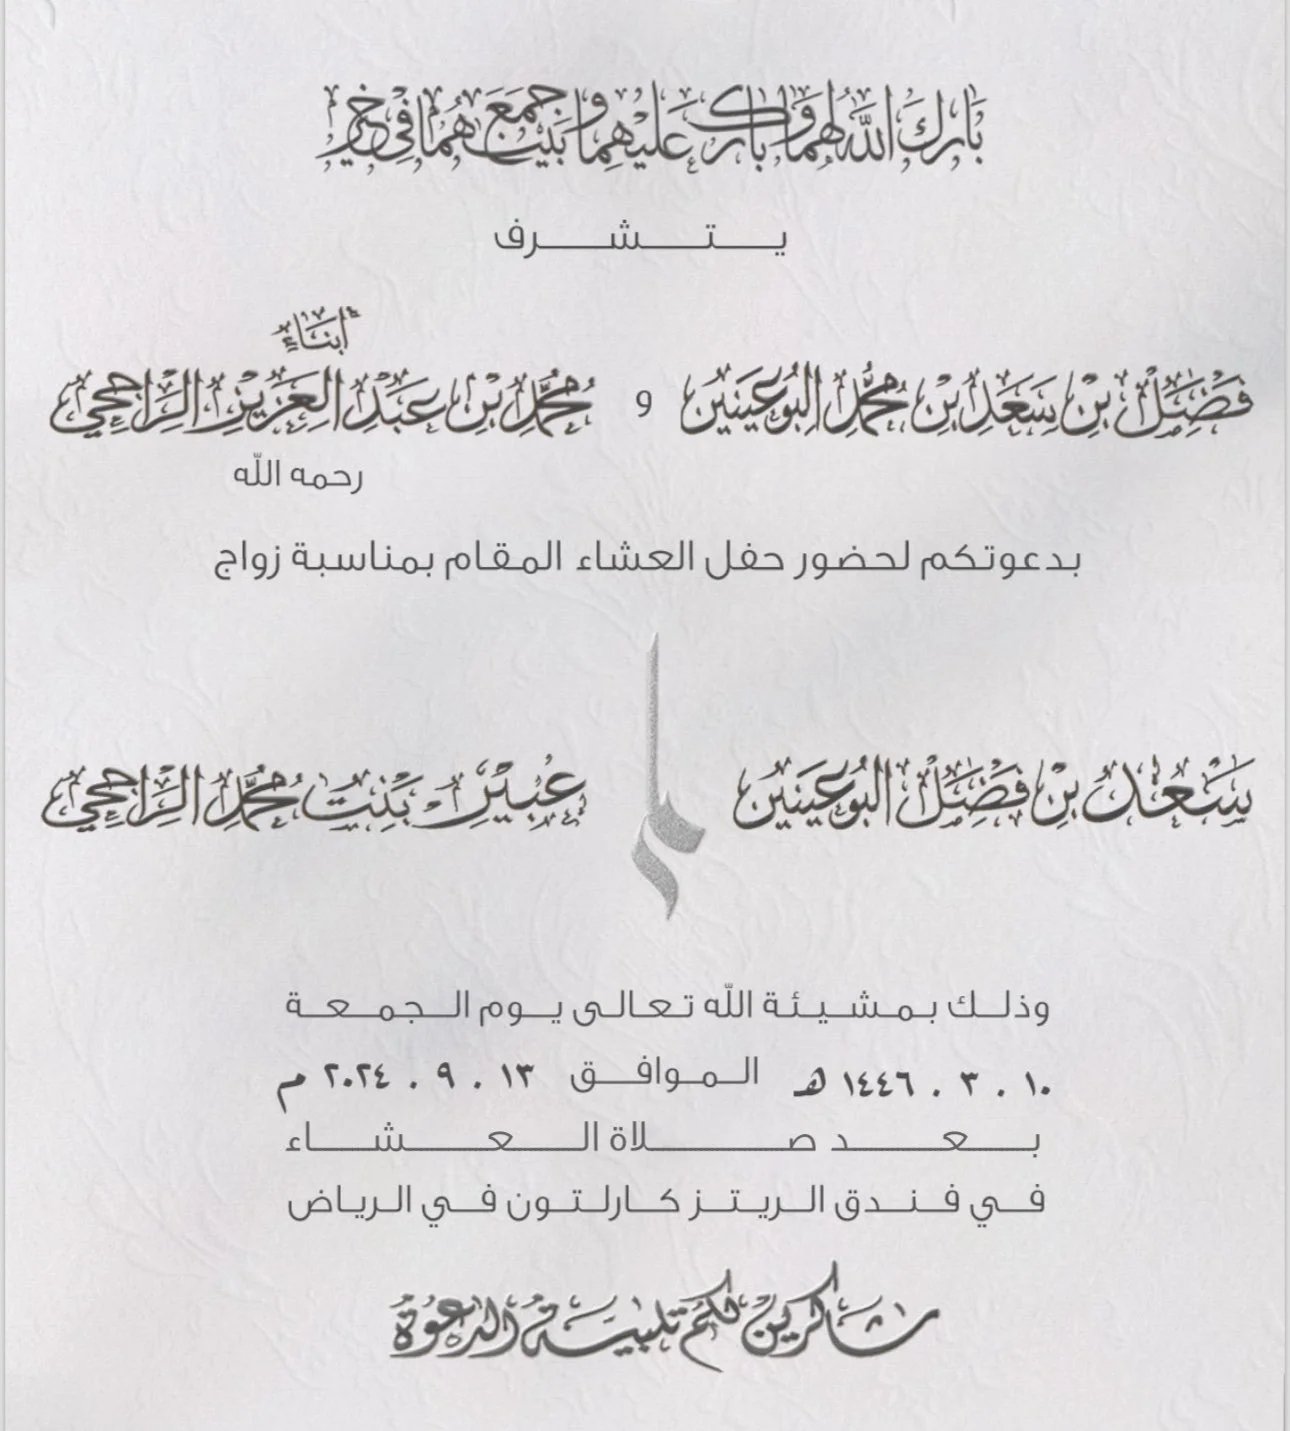 بارك الله لهما وبارك عليهما وجمع بينهما في خير
يتشرف
أبناء
فضل بن سعد بن محمد البوعينين و محمد بن عبدالعزيز الراجحي
رحمه الله
بدعوتكم لحضور حفل العشاء المقام بمناسبة زواج
سعد بن فضل البوعينين
عبير بنت محمد الراجحي
وذلك بمشيئة الله تعالى يوم الجمعة
١٠ . ٣ . ١٤٤٦ هـ الموافق ١٣ . ٩ . ٢٠٢٤ م
بعد صلاة العشاء
في فندق الريتز كارلتون في الرياض
شاكرين لكم تلبية الدعوة